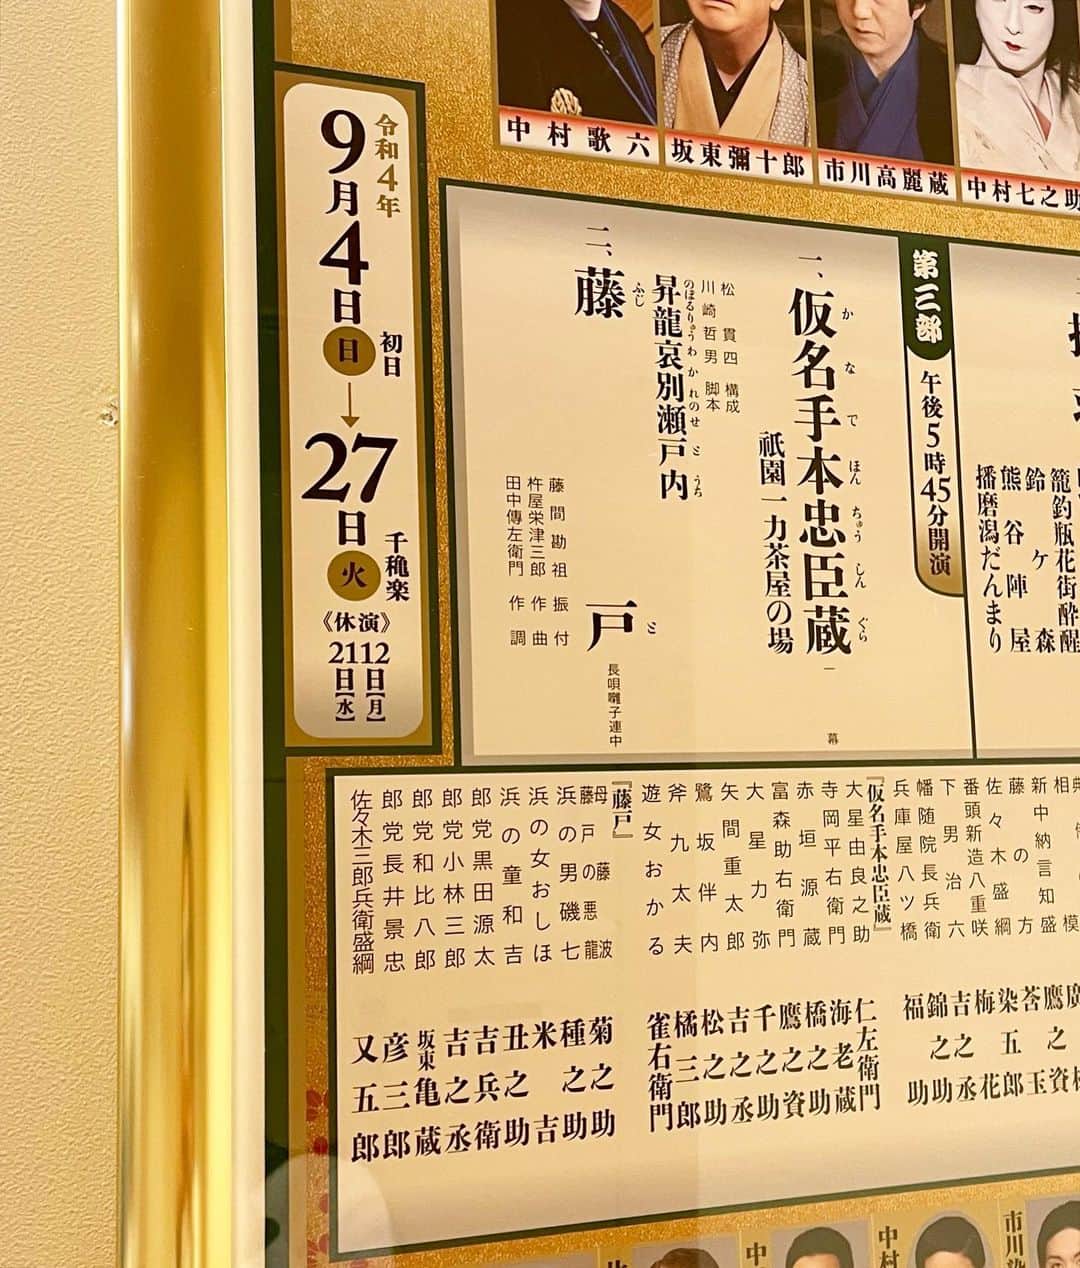 中村歌六
坂東彌十郎
市川高麗蔵
中村七之助
令和4年
9月4日日初日
27日火千穐楽
《休演》
12日【月】
21日【水】
籠釣瓶花街酔醒
鈴ヶ森
熊谷陣屋
播磨潟だんまり
第三部
午後5時45分開演
一、仮名手本忠臣蔵
かなでほんちゅうしんぐら
一幕
祇園一力茶屋の場
松貫四 構成
川崎哲男 脚本
昇龍哀別瀬戸内
のぼるりゅうわかれのせとうち
二、藤戸
ふじと
長唄囃子連中
藤間勘祖 振付
杵屋栄津三郎 作曲
田中傳左衛門 作調
相模
新中納言知盛
藤の方
佐々木盛綱
番頭新造八重咲
下男治六
幡随院長兵衛
兵庫屋八ツ橋
鷹之資
莟玉
染五郎
梅花
吉之丞
錦之助
福助
『仮名手本忠臣蔵』
大星由良之助 仁左衛門
寺岡平右衛門 海老蔵
赤垣源蔵 橋之助
富森助右衛門 鷹之資
大星力弥 千之助
矢間重太郎 吉之丞
鷺坂伴内 松之助
斧九太夫 橘三郎
遊女おかる 雀右衛門
『藤戸』
母藤波
藤戸の悪龍 菊之助
浜の男磯七 種之助
浜の女おしほ 米吉
浜の童和吉 丑之助
郎党黒田源太 吉兵衛
郎党小林三郎 吉之丞
郎党和比八郎 坂東亀蔵
郎党長井景忠 彦三郎
佐々木三郎兵衛盛綱 又五郎
中
中村
市川染